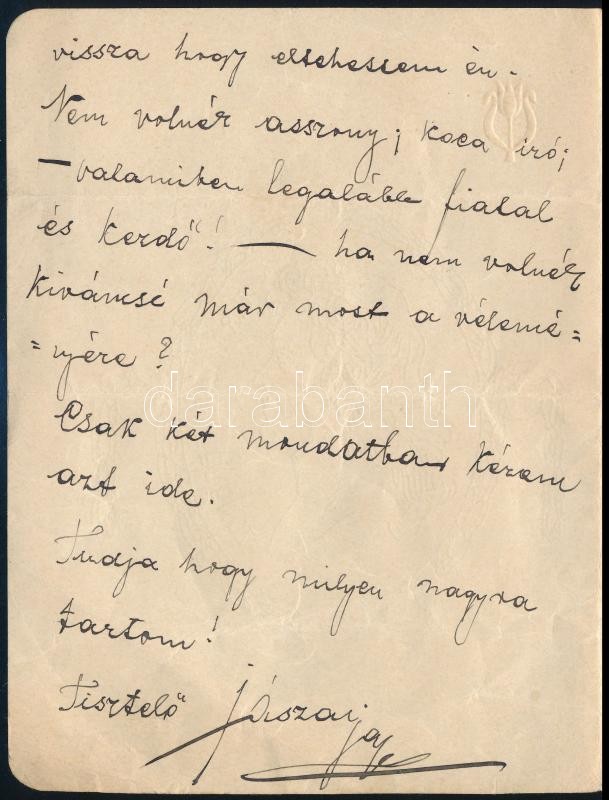 vissza hogy eltehessem én.
Nem volnék asszony; koca író;
– valamiben legalább fiatal
és kezdő! — ha nem volnék
kíváncsi már most a vélemé=
=nyére?
Csak két mondatban kérem
azt ide.
Tudja hogy milyen nagyra
tartom!
Tisztelő Jászai
darabanth